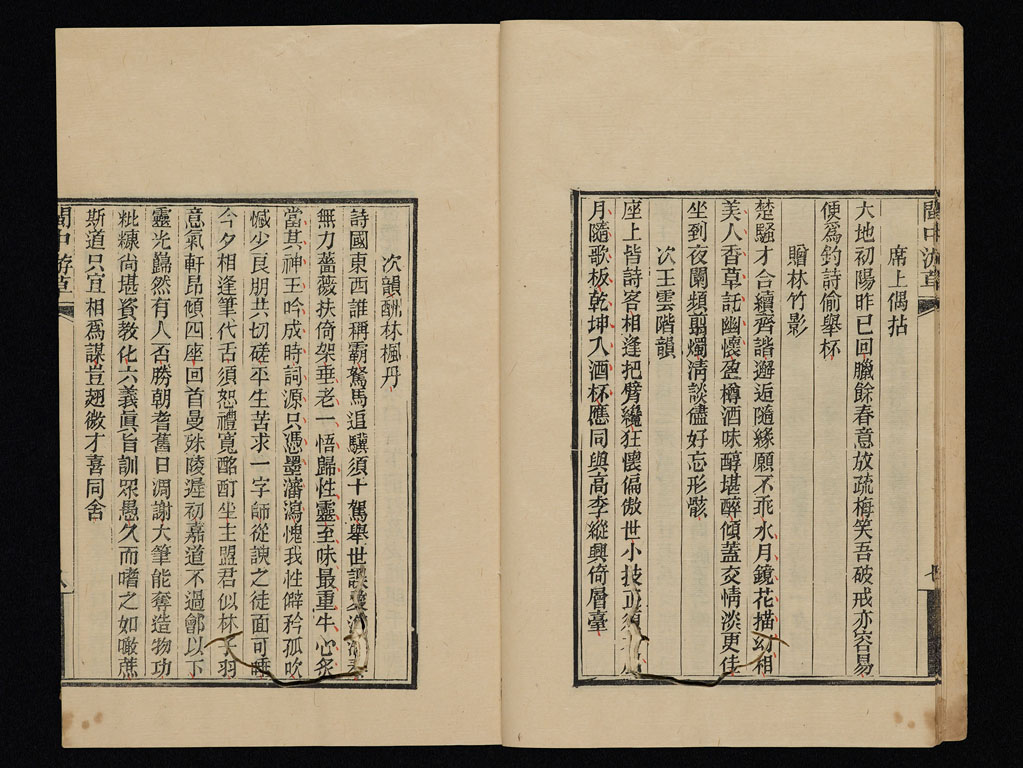 閩中游草
席上偶拈
大地初陽昨已回臘餘春意放疏梅笑吾破戒亦容易
便爲釣詩偷舉杯
贈林竹影
楚騷才合續齊諧邂逅隨緣願不乖水月鏡花描幻相
美人香草託幽懷盈樽酒味醇堪醉傾蓋交情淡更佳
坐到夜闌頻翦燭清談儘好忘形骸
次王雲階韻
座上皆詩客相逢把臂纔狂懷偏傲世小技正須
月隨歌板乾坤入酒杯應同與高李縱興倚層臺
七
次韻酬林楓丹
詩國東西誰稱霸駑馬追驥須十駕舉世誤
無力薔薇扶倚架垂老一悟歸性靈至味最重牛心炙
當其神王吟成時詞源只憑墨瀋瀉愧我性僻矜孤吹
憾少良朋共切磋平生苦求一字師從諛之徒面可唾
今夕相逢筆代舌須恕禮寬酩酊坐主盟君似林羽
意氣軒昂傾四座回首曼殊陵遲初嘉道不過鄶以下
靈光巋然有人否勝朝耆舊日凋謝大筆能奪造物功
粃糠尙堪資教化六義眞旨訓眾愚久而嗜之如噉蔗
斯道只宜相爲謀豈翅微才喜同舍
閩中游草
八